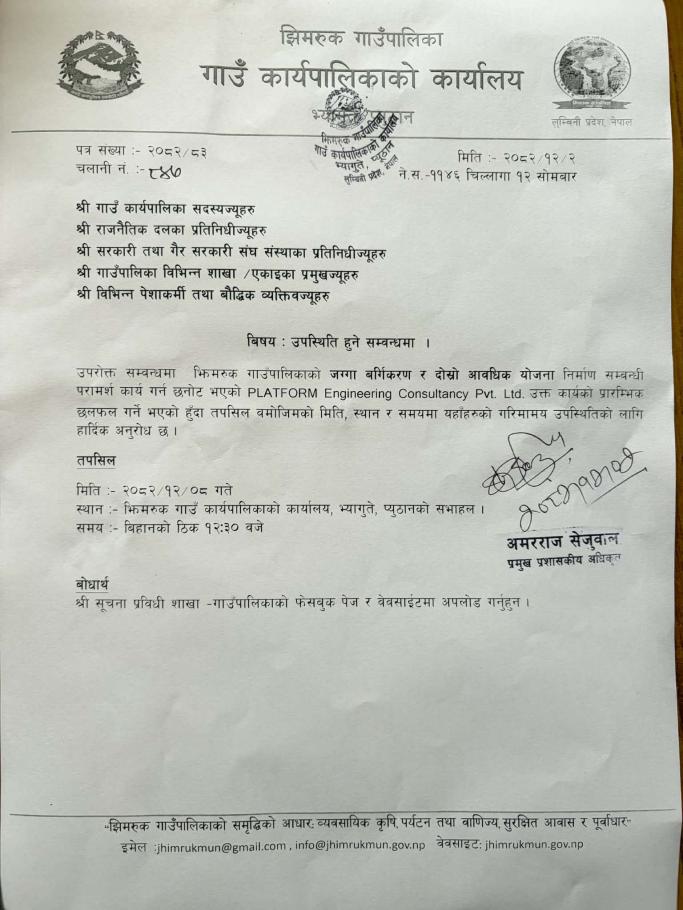 झिमरुक गाउँपालिका
गाउँ कार्यपालिकाको कार्यालय
झिमरुक गाउँपालिका
गाउँ कार्यपालिकाको कार्यालय
भ्यागुते, प्यूठान
लुम्बिनी प्रदेश, नेपाल
लुम्बिनी प्रदेश, नेपाल
पत्र संख्या :- २०८२/८३
मिति :- २०८२/१२/२
चलानी नं. :-
ने.स.-११४६ चिल्लागा १२ सोमबार
श्री गाउँ कार्यपालिका सदस्यज्यूहरु
श्री राजनैतिक दलका प्रतिनिधीज्यूहरु
श्री सरकारी तथा गैर सरकारी संघ संस्थाका प्रतिनिधीज्यूहरु
श्री गाउँपालिका विभिन्न शाखा /एकाइका प्रमुखज्यूहरु
श्री विभिन्न पेशाकर्मी तथा बौद्धिक व्यक्तिवज्यूहरु
बिषय : उपस्थिति हुने सम्वन्धमा ।
उपरोक्त सम्वन्धमा झिमरुक गाउँपालिकाको जग्गा बर्गिकरण र दोस्रो आवधिक योजना निर्माण सम्वन्धी
परामर्श कार्य गर्न छनोट भएको PLATFORM Engineering Consultancy Pvt. Ltd. उक्त कार्यको प्रारम्भिक
छलफल गर्ने भएको हुँदा तपसिल वमोजिमको मिति, स्थान र समयमा यहाँहरुको गरिमामय उपस्थितिको लागि
हार्दिक अनुरोध छ ।
तपसिल
मिति :- २०८२/१२/०८ गते
स्थान :- झिमरुक गाउँ कार्यपालिकाको कार्यालय, भ्यागुते, प्युठानको सभाहल ।
समय :- बिहानको ठिक १२:३० वजे
अमरराज सेजुवाल
प्रमुख प्रशासकीय अधिकृत
बोधार्थ
श्री सूचना प्रविधी शाखा -गाउँपालिकाको फेसबुक पेज र वेवसाइटमा अपलोड गर्नुहुन ।
"झिमरुक गाउँपालिकाको समृद्धिको आधार: व्यवसायिक कृषि, पर्यटन तथा वाणिज्य, सुरक्षित आवास र पूर्वाधार"
इमेल :jhimrukmun@gmail.com , info@jhimrukmun.gov.np वेवसाइट: jhimrukmun.gov.np